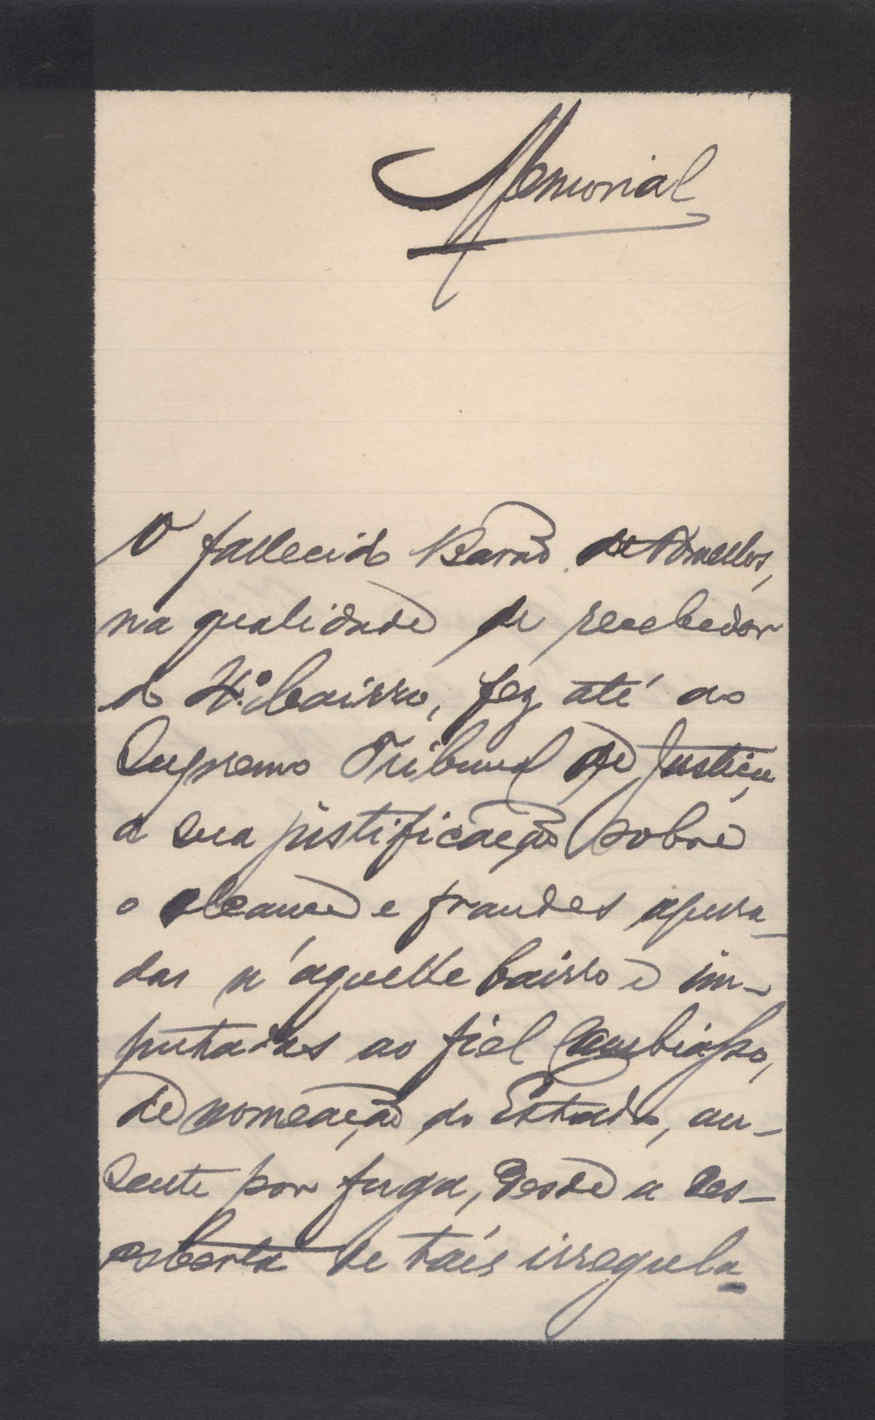 Memorial
O fallecido Barão de Barcellos,
na qualidade de recebedor
do 4.º bairro, fez até ao
Supremo Tribunal de Justiça
a sua justificação sobre
o alcance e fraudes apura-
das n'aquelle bairro e im-
putadas ao fiel Cambiasso,
de nomeação do Estado, au-
sente por fuga, desde a des-
coberta de taes irregula-